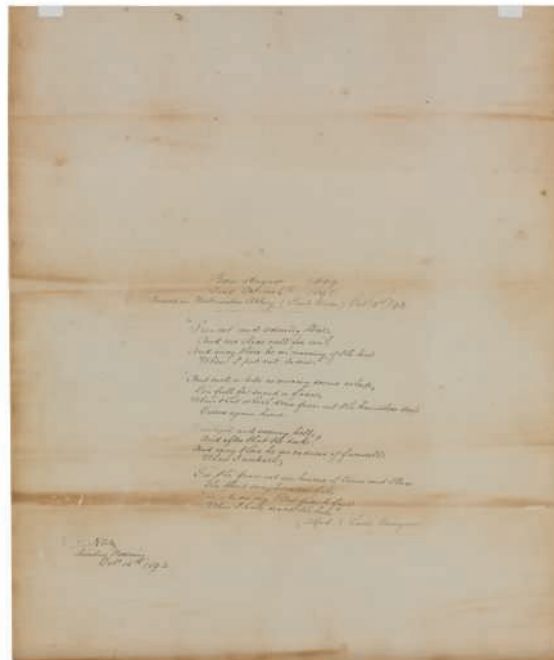 Born August 1809
Died October 6th 1892
Buried in Westminster Abbey ( Oct 12th
"Sunset and evening star,
And one clear call for me!
And may there be no moaning of the bar
When I put out to sea.
But such a tide as moving seems asleep,
Too full for sound or foam,
When that which drew from out the boundless deep
Turns again home.
Twilight and evening bell,
And after that the dark!
And may there be no sadness of farewell
When I embark;
For tho' from out our bourne of Time and Place
The flood may bear me far,
I hope to see my Pilot face to face
When I have crost the bar."
Alfred Lord Tennyson
Sunday Morning
Oct. 16th 1892